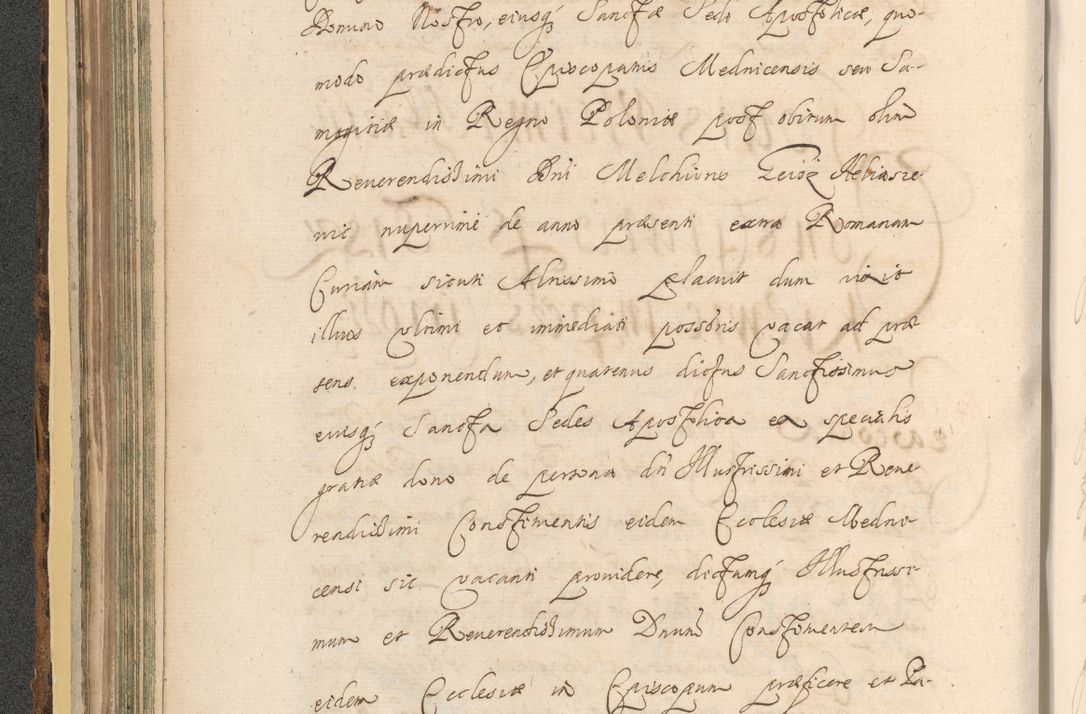 Domino Nostro, eiusq́ Sanctæ Sedi Apostolicæ, quo-
modo prædictus Episcopatus Mednicensis seu Sa-
mogitiæ in Regno Poloniæ post obitum olim
Reuerendissimi Dni Melchioris Geisz Heliasze
uic nuperrime de anno præsenti extra Romanam
Curiam sicuti Altissimo placuit dum vixit
illius vltimi et immediati possoris vacat ad præ
sens. exponendum, et quatenus dictus Sanctissimus
eiusq́ Sancta Sedes Apostolica ex specialis
gratiæ dono de persona dti Illustrissimi et Reue
rendissimi Constituentis eidem Ecclesiæ Medni
censi sic vacanti prouidere, dictumq́ Illustrissi-
mum et Reuerendissimum Dnum Constituentem
eidem Ecclesiæ in Episcopum præficere et Pa-